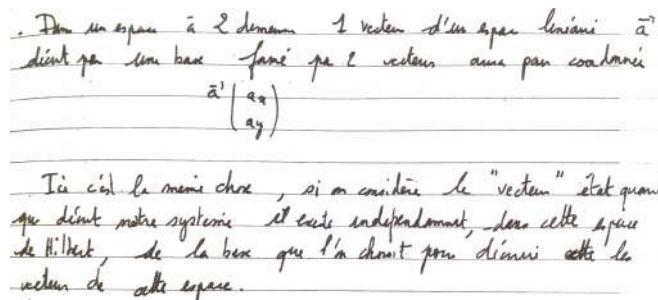 . Dans un espace à 2 dimens 1 vecteur d'un espace linéaire a⃗
décrit par une base formé par 2 vecteurs aura pour coordonnées
a⃗ | ax
ay
Ici c'est la même chose, si on considère le "vecteur" état quan
qui décrit notre système il existe indépendamment, dans cette espace
de Hilbert, de la base que l'on choisit pour décrire les
vecteurs de cette espace.